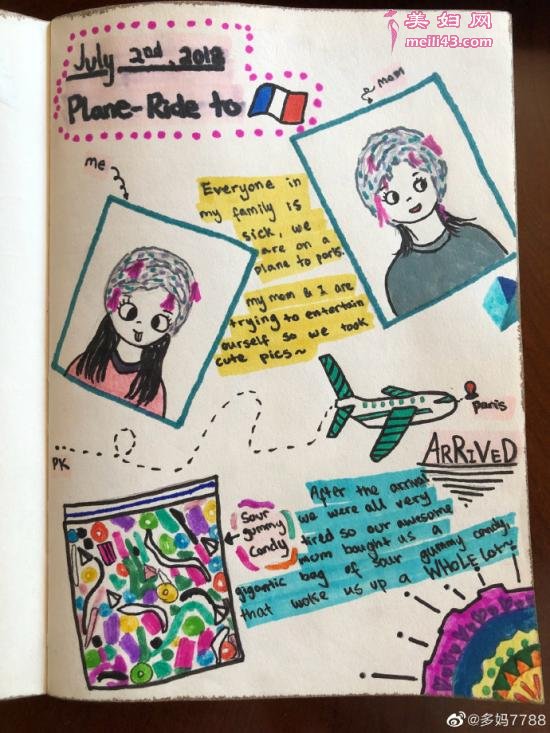 美妇网
meili43.com
July 2nd, 2018
Plane-Ride to
mom
ME
Everyone in
my family is
sick, we
are on a
plane to paris.
my mom & I are
trying to entertain
ourself so we took
cute pics~
Paris
PK
ARRIVED
After the arrival
we were all very
tired so our awesome
mom bought us a
gigantic bag of sour gummy candy,
that woke us up a WHOLE lot~
sour
gummy
candy
@多妈7788